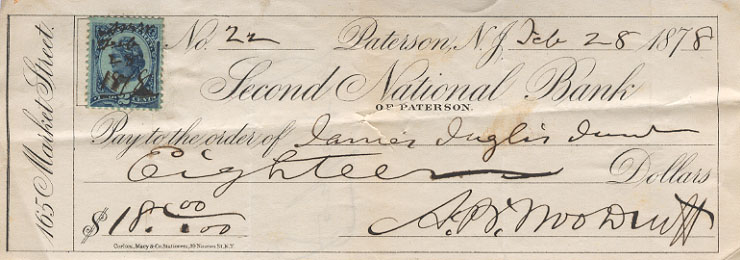 165 Market Street.
No. 22 Paterson, N.J. Feb 28 1878
Second National Bank
OF PATERSON.
Pay to the order of James Inglis
Eighteen Dollars
$18.00/100
Corlies, Macy & Co. Stationers, 39 Nassau St. N.Y.